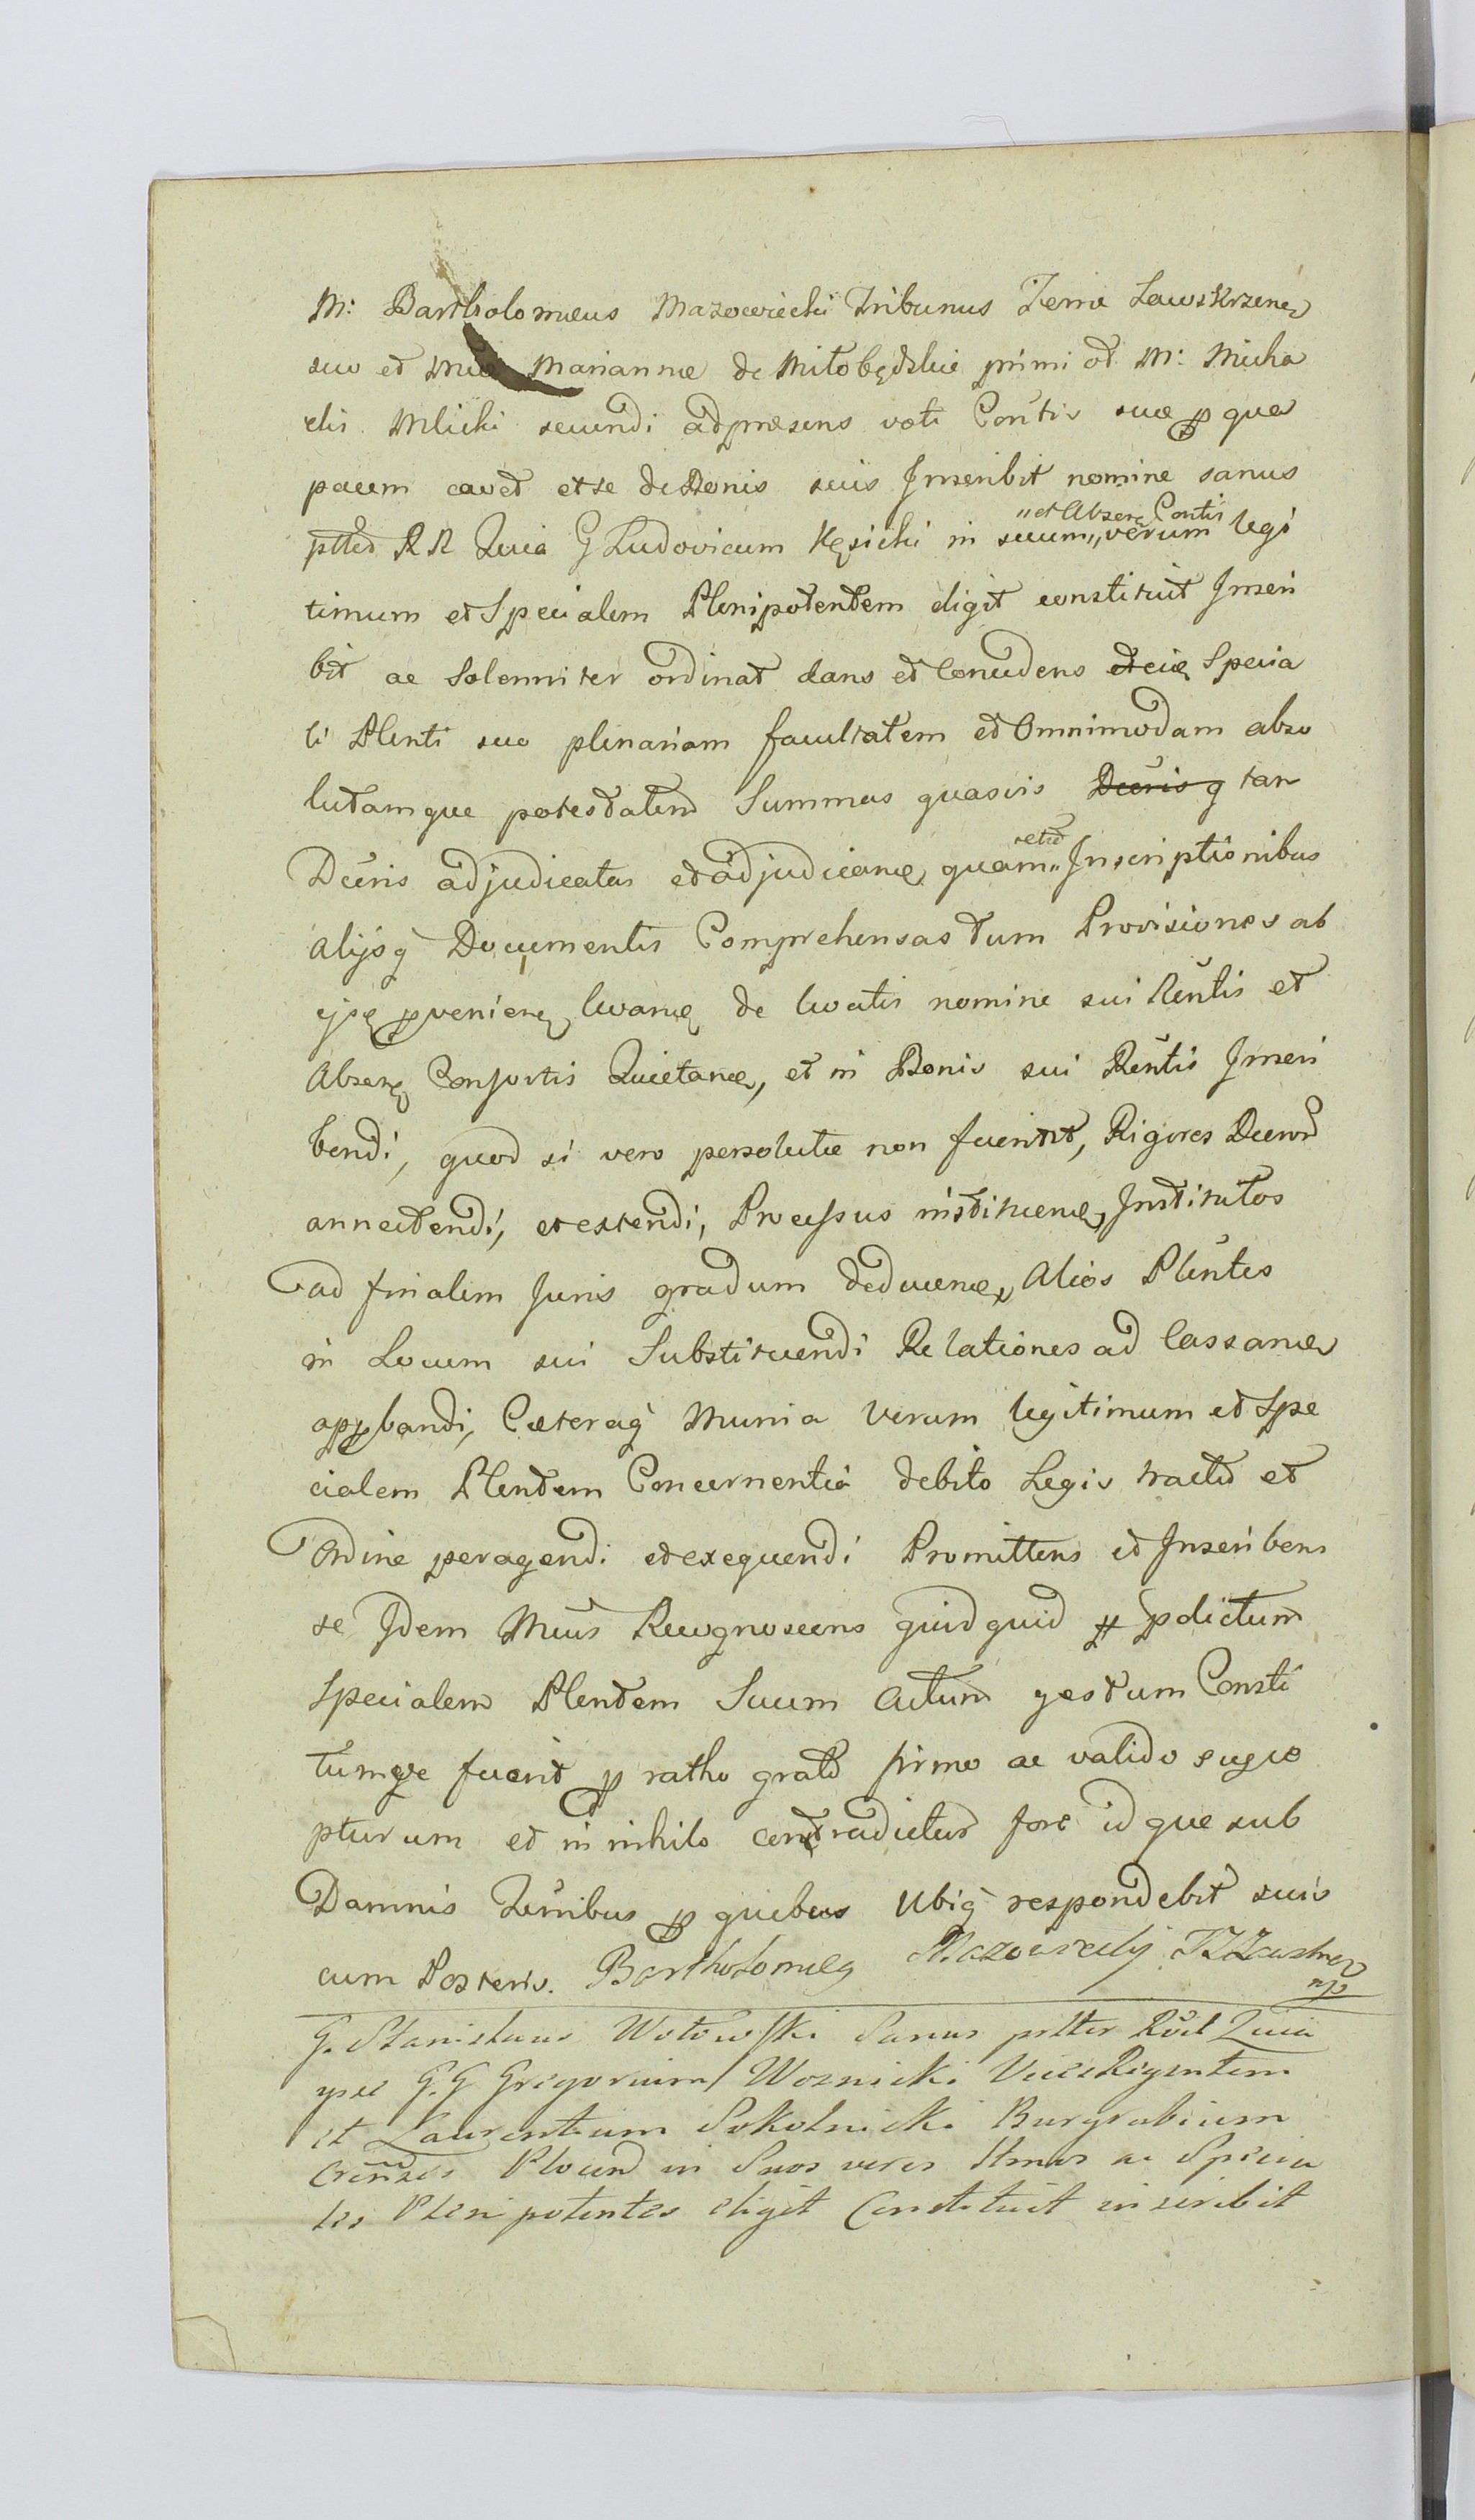 M: Bartholomæus Mazowiecki Tribunus Terræ Zawskrzene
suo et Mæ Mariannæ de Miłobędzkie primi et M: Micha
elis Mlicki secundi adpræsens voti Contis suæ p qua
pacem cavet et se de Bonis suis Inscribit nomine sanus
ptter RR Quia G Ludovicum Kęsicki in suum „et Absen Contis„ verum legi
timum et Specialem Plenipotentem eligit constituit Inscri
bit ac Solenniter ordinat dans et Concedens Specia
li Plenti suo plenariam facultatem et Omnimodam abso
lutamque potestatem Summas quasvis Decris q tan
Decris adjudicatas et adjudicanđ quam „ Inscriptionibus
alijsq Documentis Comprehensas tum Provisiones ab
ejsę pvenienę levanđ de levatis nomine sui Rentis et
Absenę Consortis Quietanđ, et in Bonis sui Rentis Inscri
bendi, quod si vero persolutæ non fuerint, Rigores Decror
annectendi, et extendi, Processus instituenđ, Institutos
ad finalem Juris gradum deducenđ, Alios Plentes
in Locum sui Substituendi Relationes ad Cassanđ
appbandi, Cæteraq Munia Verum legitimum et Spe
cialem Plentem Concernentia debito Legis tractu et
Ordine peragendi et exequendi Promittens et Inscribens
se Idem Mcus Recognoscens quidquid p pdictum
Specialem Plentem Suum Actum gestum Consti
tumque fuerit p ratho grato firmo ac valido susce
pturum et in nihilo contradictur fore idque sub
Damnis Quibus p quibus Ubiq respondebit suis
cum Posteris. Bartholomeg Mazowiecky TZZawskrz
mp
G. Stanislaus Wołowski Sanus pttter Rcit Quia
ipse G.G Gregorium Woznicki ViceRegentem
et Laurentium Sokolnicki Burgrabium
Crenses Plocen in Suos veros ac Specia
les Plenipotentes eligit Constituit inscribit